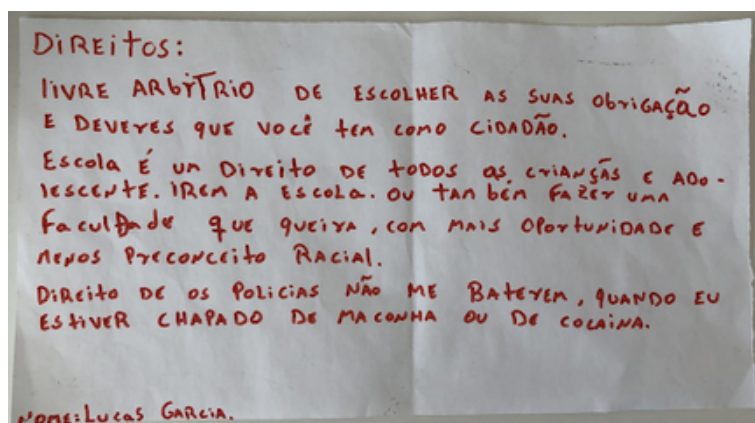 DiREitos:
liVRE ARbiTRio DE ESCOLHER AS SUAS ObriGAÇÃO
E DEVERES QUE VOCÊ tEM COMO CiDADÃO.
Escola É um Direito DE todos as crianÇÃs E ADO-
lESCENTE. iREM A Escola. OU tAm bém FAZER UMA
Faculdade que queira, com mais oportunidade E
menos Preconceito Racial.
DiREito DE OS POLICIAS NÃO ME BATEREM, QUANDO EU
EStiVER CHAPADO DE MACONHA OU DE COCAiNA.
NOME: Lucas GARCiA.